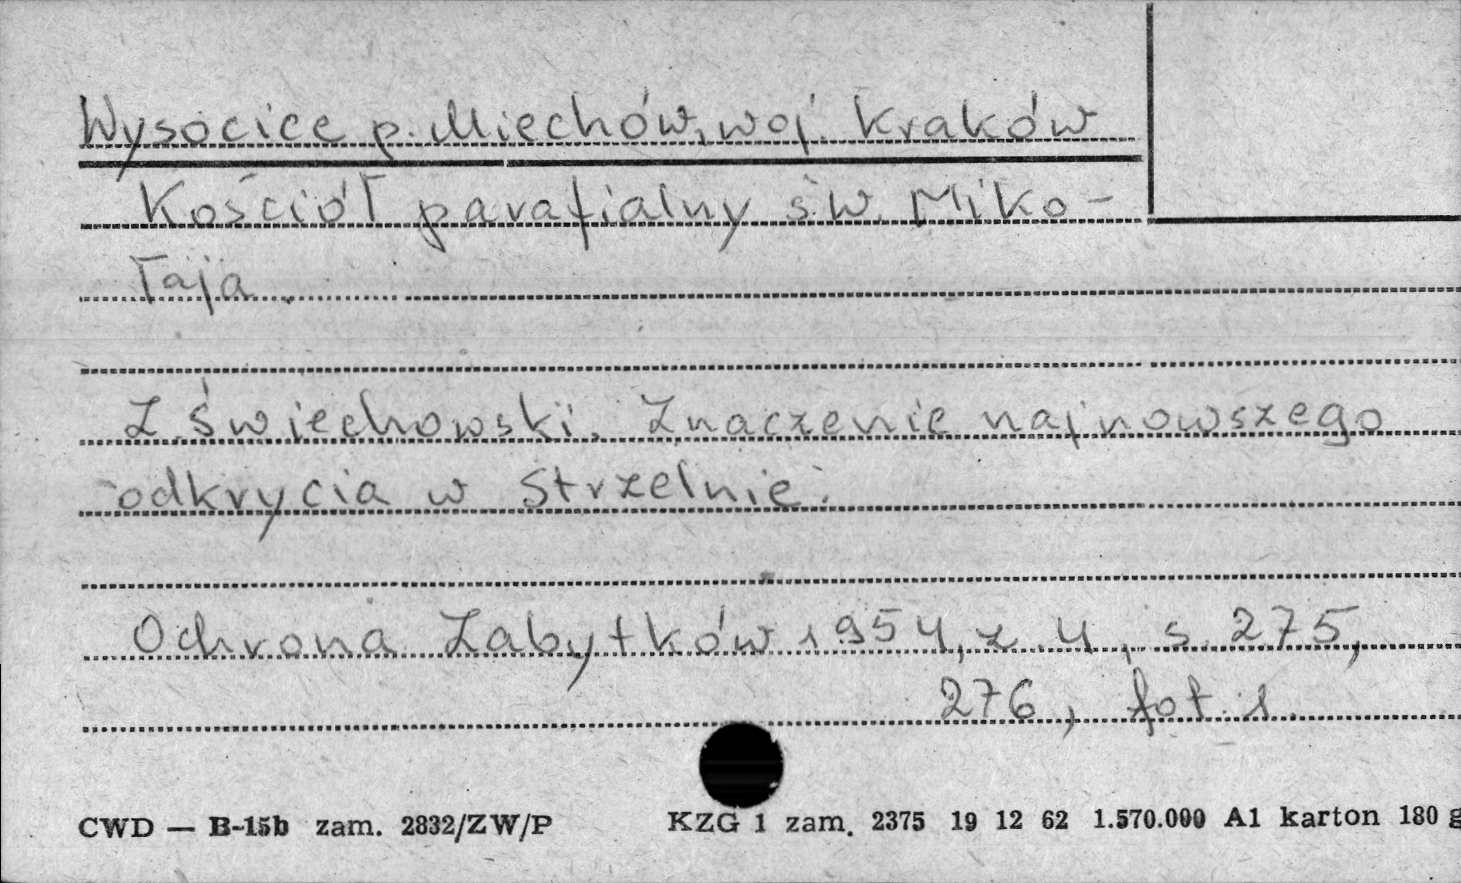 Wysocice p. Miechów, woj. Kraków
Kościół parafialny św. Miko-
łaja.
Z. Świechowski. Znaczenie najnowszego
odkrycia w Strzelnie.
Ochrona Zabytków 1954, z. 4, s. 275,
276, fot. 1.
CWD — B-15b zam. 2832/ZW/P KZG 1 zam. 2375 19 12 62 1.570.000 A1 karton 180 g